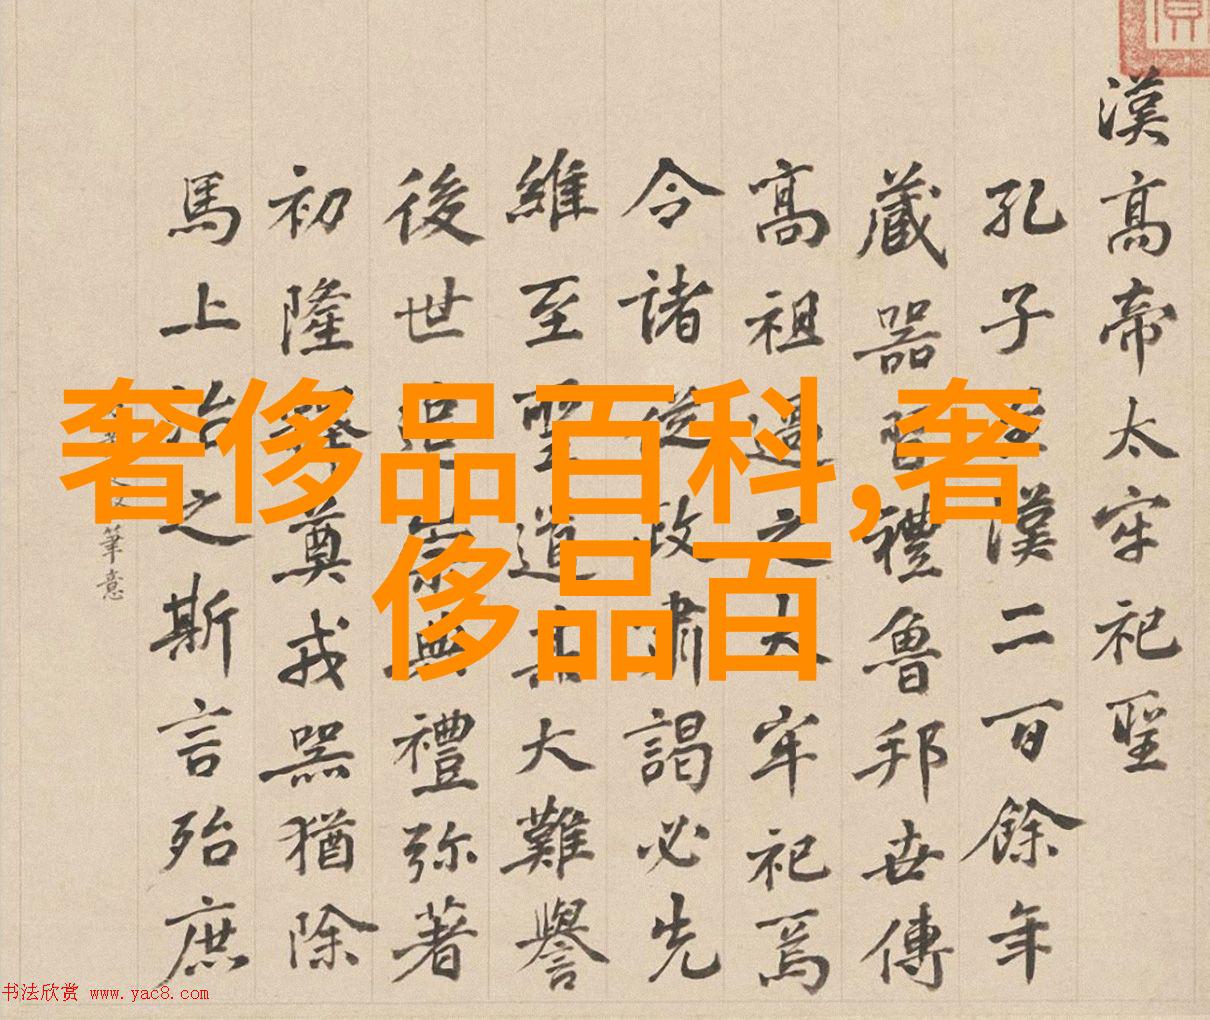 漢高帝太牢祀聖
孔子漢二百餘年
藏器習禮魯邦世傳
高祖過之太牢祀焉
令諸從政肅謁必先
維至聖道大難譽
後世崇無禮弥著
初隆奠戎器猶除
馬上治之斯言殆庶
筆意
奢侈品百科,奢
侈品百
书法欣赏 www.yac8.com